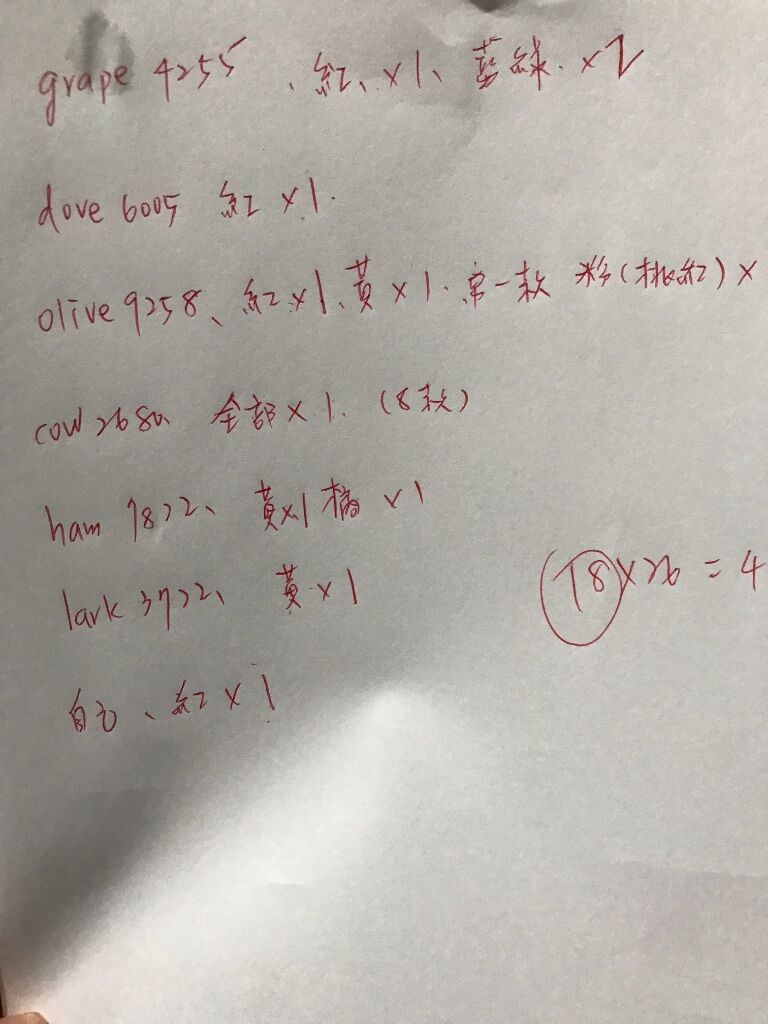 grape 4255、紅、x1、藍綠、x2
dove 6005 紅 x1.
olive 9258、紅x1、黃x1、另一款 粉(桃紅)x
cow 268a、全部x1、(8款)
ham 7822、黃x1 橘 x1
lark 3722、黃x1
18x26=4
自己、紅x1